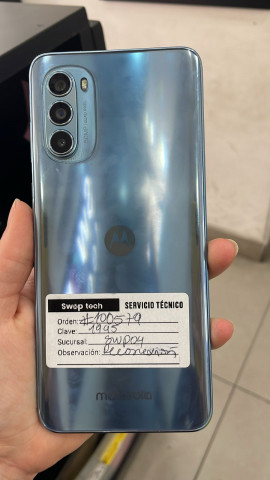 Swop tech SERVICIO TÉCNICO
Orden: #100579
Clave: 1995
Sucursal: SWP04
Observación: Reconexión
motorola